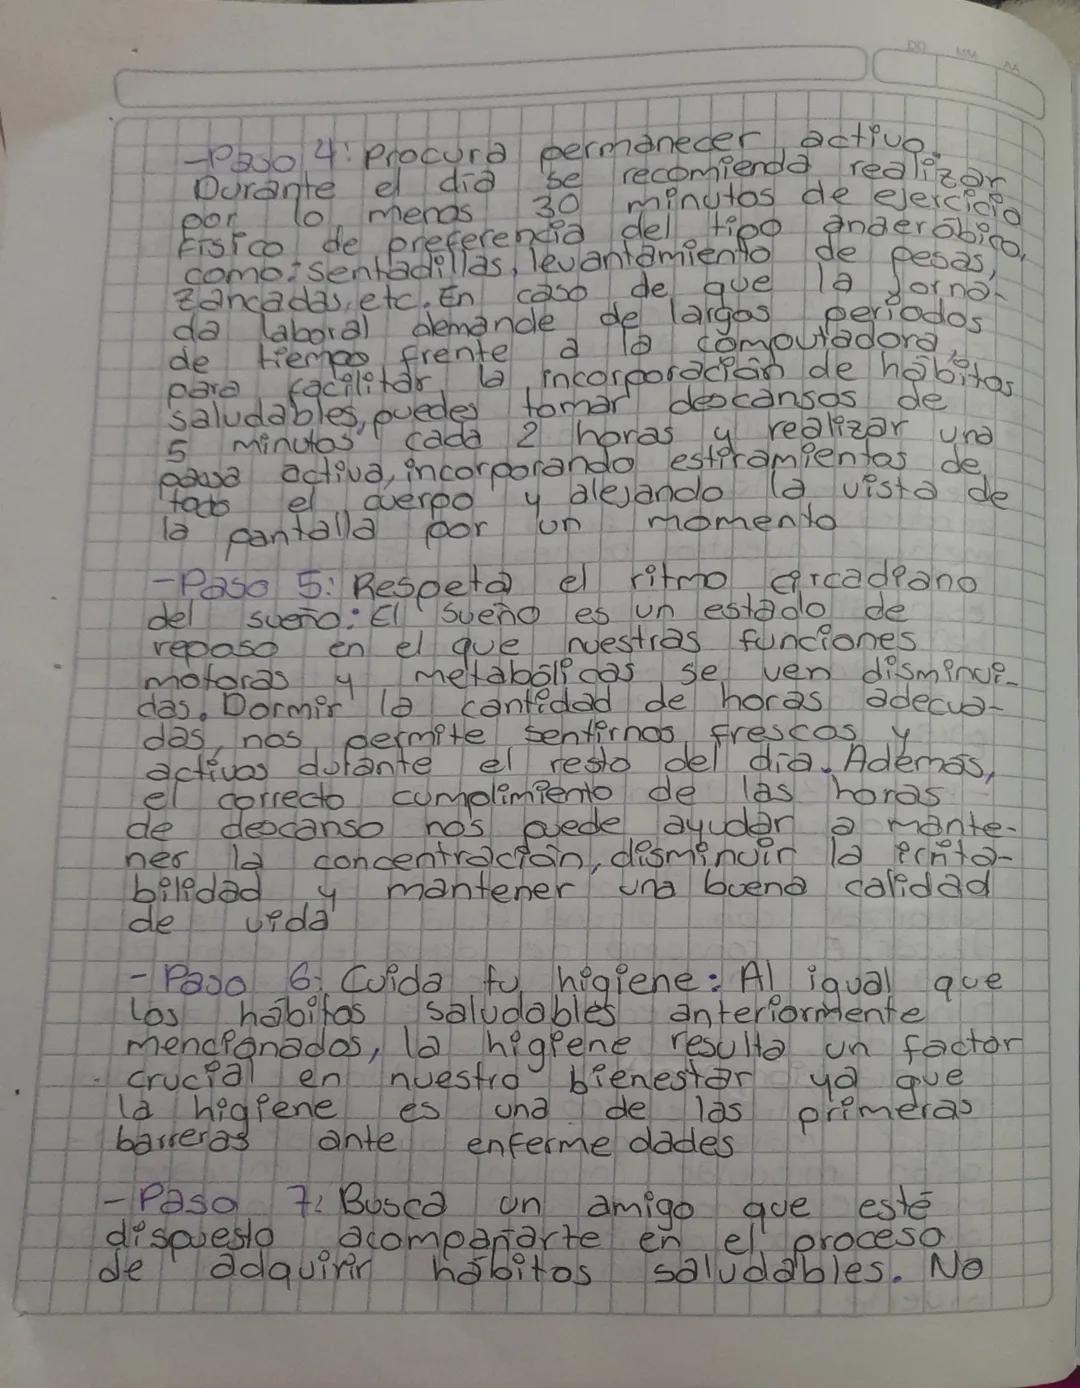 DD MM AA
-Paso 4: Procura permanecer activo.
Durante el día se recomienda realizar
por lo menos 30 minutos de ejercicio
físico de preferencia del tipo anaeróbico,
como: sentadillas, levantamiento de pesas,
zancadas, etc. En caso de que la jorna-
da laboral demande de largos periodos
de tiempo frente a la computadora,
para facilitar la incorporación de hábitos
saludables, puedes tomar descansos de
5 minutos cada 2 horas y realizar una
pausa activa, incorporando estiramientos de
todo el cuerpo y alejando la vista de
la pantalla por un momento
-Paso 5: Respeta el ritmo circadiano
del sueño: El sueño es un estado de
reposo en el que nuestras funciones
motoras y metabólicas se ven disminui-
das. Dormir la cantidad de horas adecua-
das, nos permite sentirnos frescos y
activos durante el resto del día. Además,
el correcto cumplimiento de las horas
de descanso nos puede ayudar a mante-
ner la concentración, disminuir la irrita-
bilidad y mantener una buena calidad
de vida
- Paso 6: Cuida tu higiene: Al igual que
los hábitos saludables anteriormente
mencionados, la higiene resulta un factor
crucial en nuestro bienestar ya que
la higiene es una de las primeras
barreras ante enfermedades
- Paso 7: Busca un amigo que esté
dispuesto acompañarte en el proceso
de adquirir hábitos saludables. No